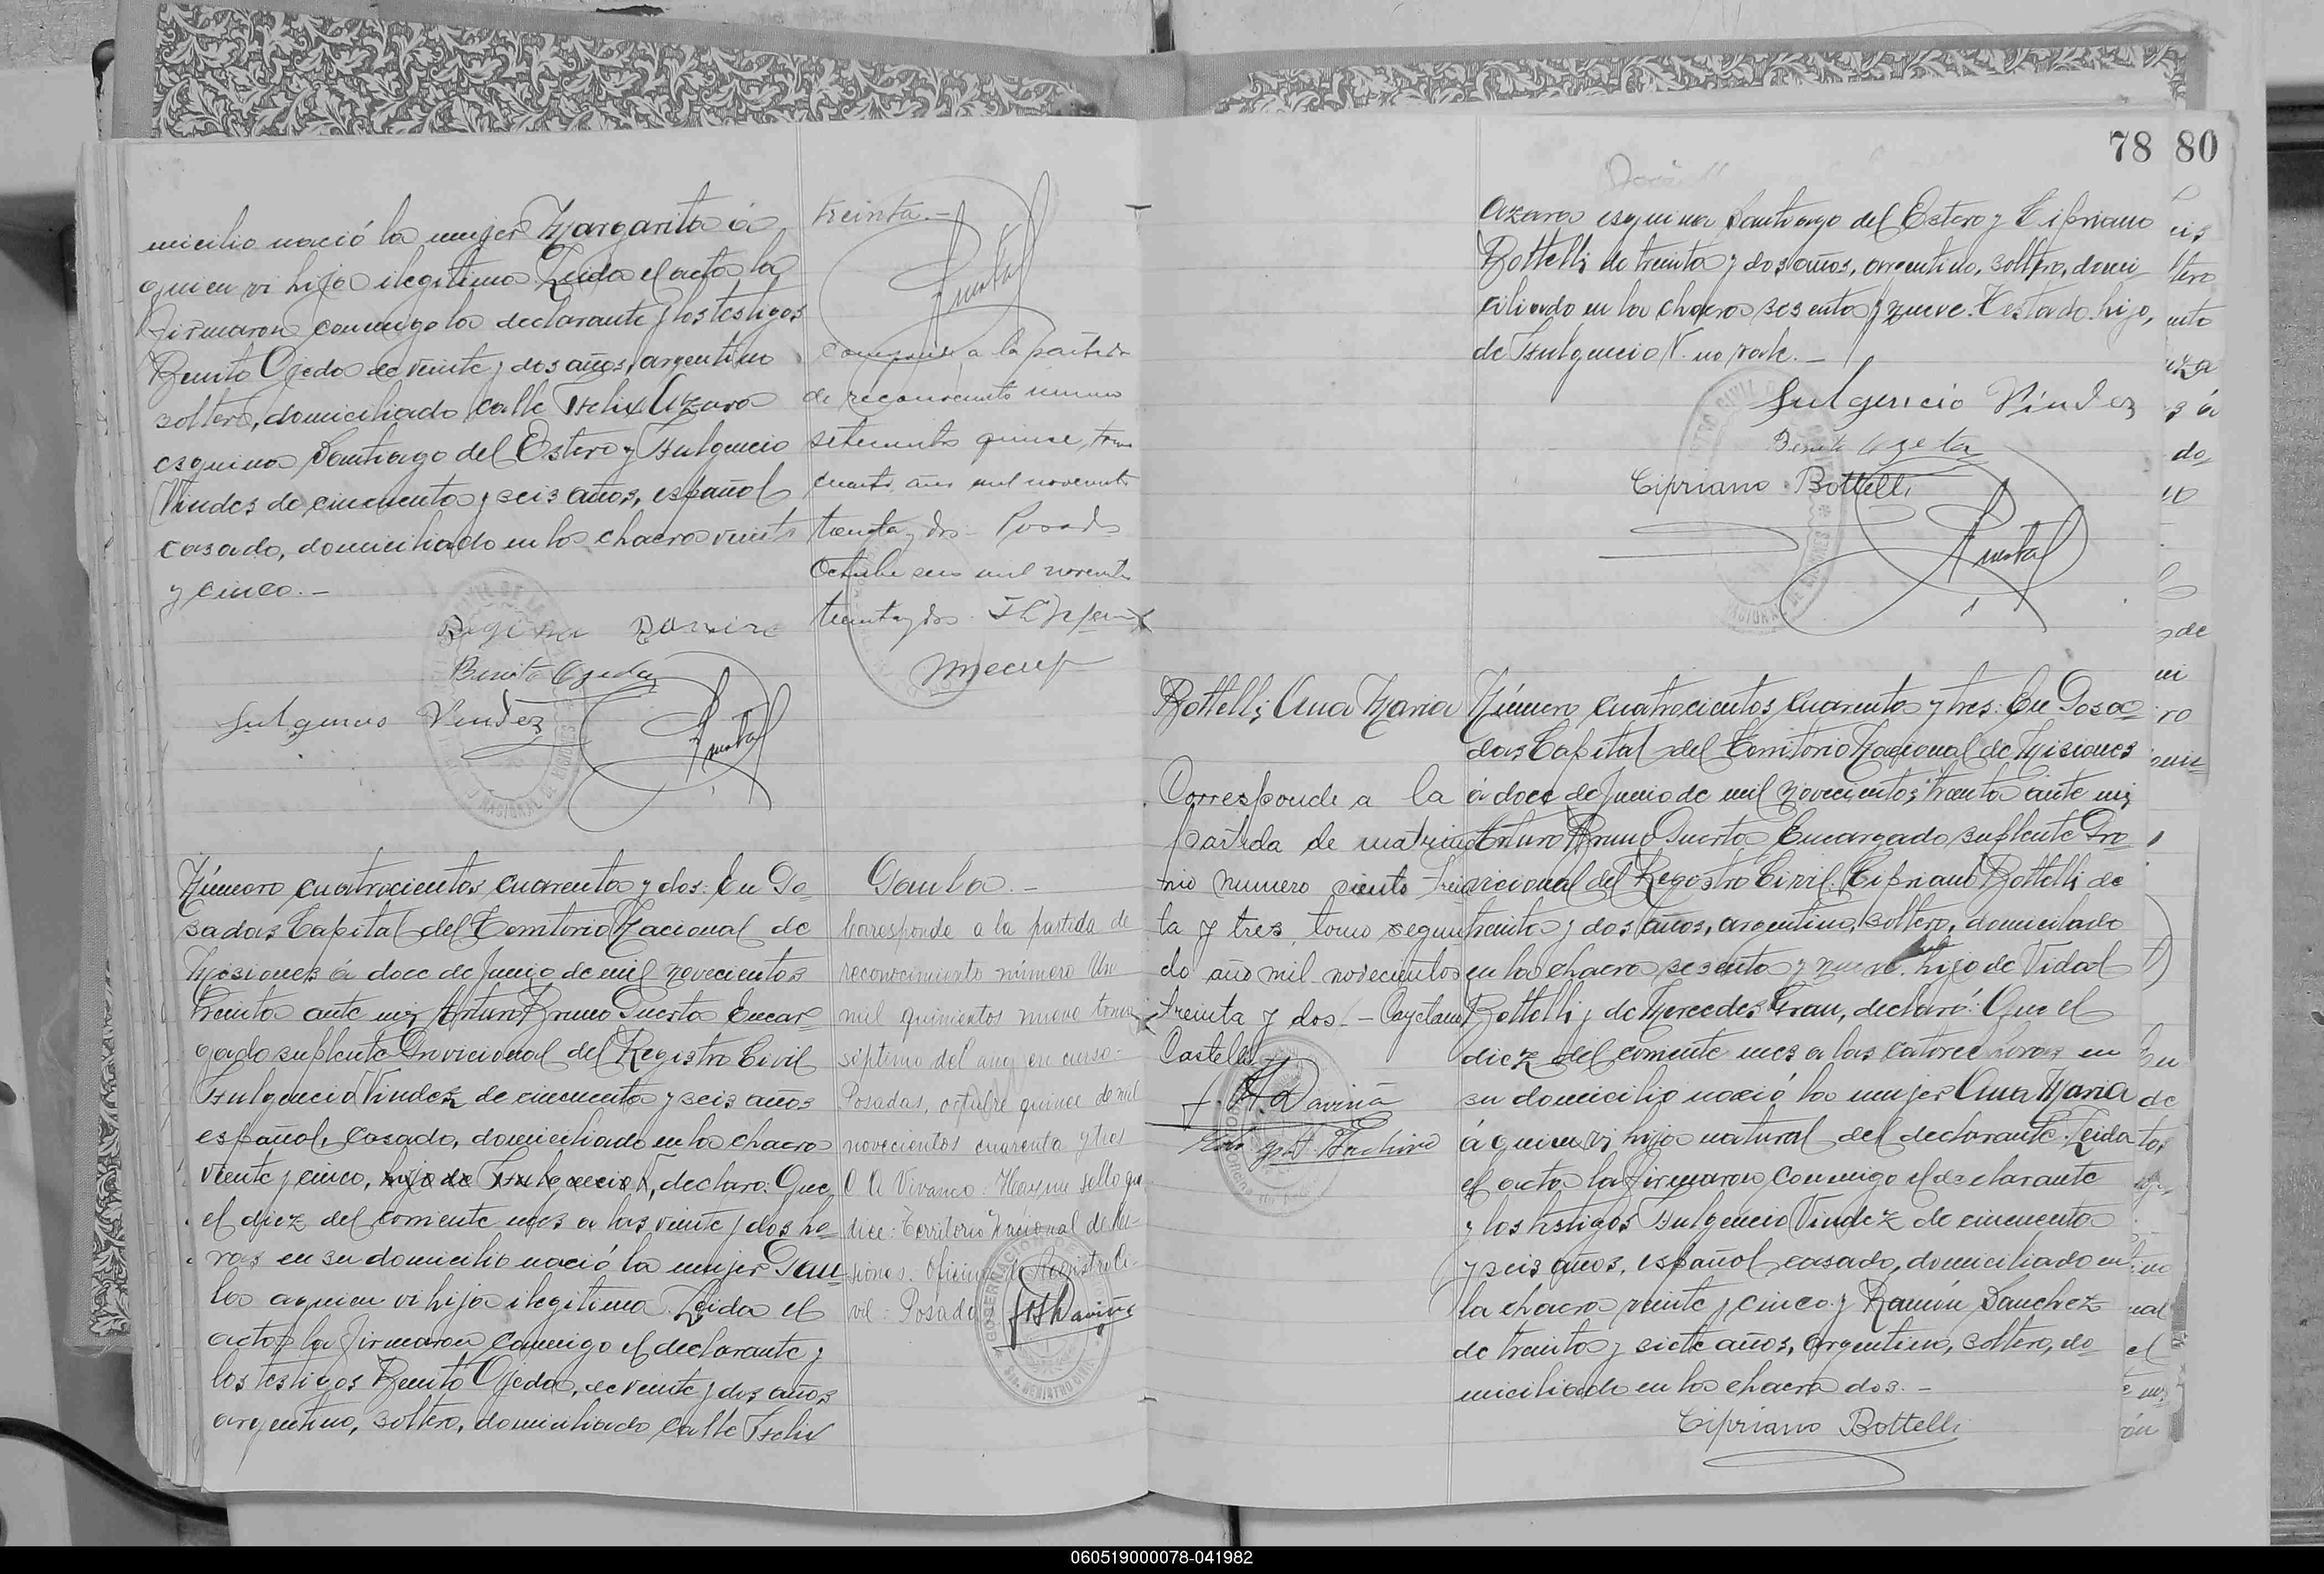 78 80
micilio nació la mujer Margarita á
quien vi hija ilegitima. Leida el acta la
firmaron conmigo la declarante y los testigos
Benito Ojeda de veinte y dos años, argentino
soltero, domiciliado calle Felix Azara
esquina Santiago del Estero y Fulgencio
Vindes de cincuenta y seis años, español
casado, domiciliado en la chacra veinte
y cinco.-
Benito Ojeda
Fulgencio Vindez
treinta.-
Corresponde a la partida
de reconocimiento número
setecientos quince, tomo
cuarto año mil novecientos
treinta y dos - Posadas
Octubre seis mil novecientos
treinta y dos.
Número cuatrocientos cuarenta y dos: En Po-
sadas Capital del Territorio Nacional de
Misiones á doce de Junio de mil novecientos
treinta ante mi Arturo Bruno Puerta Encar-
gado suplente Provicional del Registro Civil
Fulgencio Vindez de cincuenta y seis años
español, casado, domiciliado en la chacra
veinte y cinco, hijo de Fulgencio V, declaro: Que
el diez del corriente mes a las veinte y dos ho-
ras en su domicilio nació la mujer Pau-
la a quien vi hija ilegitima. Leida el
acta la firmaron conmigo el declarante y
los testigos Benito Ojeda, de veinte y dos años
argentino, soltero, domiciliado calle Felix
Paula.-
Corresponde a la partida de
reconocimiento número Un
mil quinientos nueve tomo
septimo del año en curso-
Posadas, octubre quince de mil
novecientos cuarenta y tres
C A Vivanco. Hay un sello que
dice: Territorio Nacional de Mi-
siones. Oficina Registro Ci-
vil: Posadas
Azara esquina Santiago del Estero y Cipriano
Bottelli de treinta y dos años, argentino, soltero, domi-
ciliado en la chacra sesenta y nueve. Testado. hijo,
de Fulgencio V. no vale.-
Fulgencio Vindez
Cipriano Bottelli
Bottelli, Ana Maria
Corresponde a la
partida de matrimo-
nio numero ciento trein-
ta y tres, tomo segun-
do año mil novecientos
treinta y dos.- Cayetano
Castelli
Número cuatrocientos cuarenta y tres: En Posa-
das Capital del Territorio Nacional de Misiones
á doce de Junio de mil novecientos treinta ante mi
Arturo Bruno Puerta Encargado suplente Pro-
vicional del Registro Civil. Cipriano Bottelli de
treinta y dos años, argentino, soltero, domiciliado
en la chacra sesenta y nueve. hijo de Vidal
Bottelli y de Mercedes Grau, declaró: Que el
diez del corriente mes a las catorce horas en
su domicilio nació la mujer Ana Maria
á quien vi hija natural del declarante. Leida
el acta la firmaron conmigo el declarante
y los testigos Fulgencio Vindez de cincuenta
y seis años, español casado, domiciliado en
la chacra veinte y cinco y Ramón Sanchez
de treinta y siete años, argentino, soltero, do-
miciliado en la chacra dos.-
Cipriano Bottelli
060519000078-041982